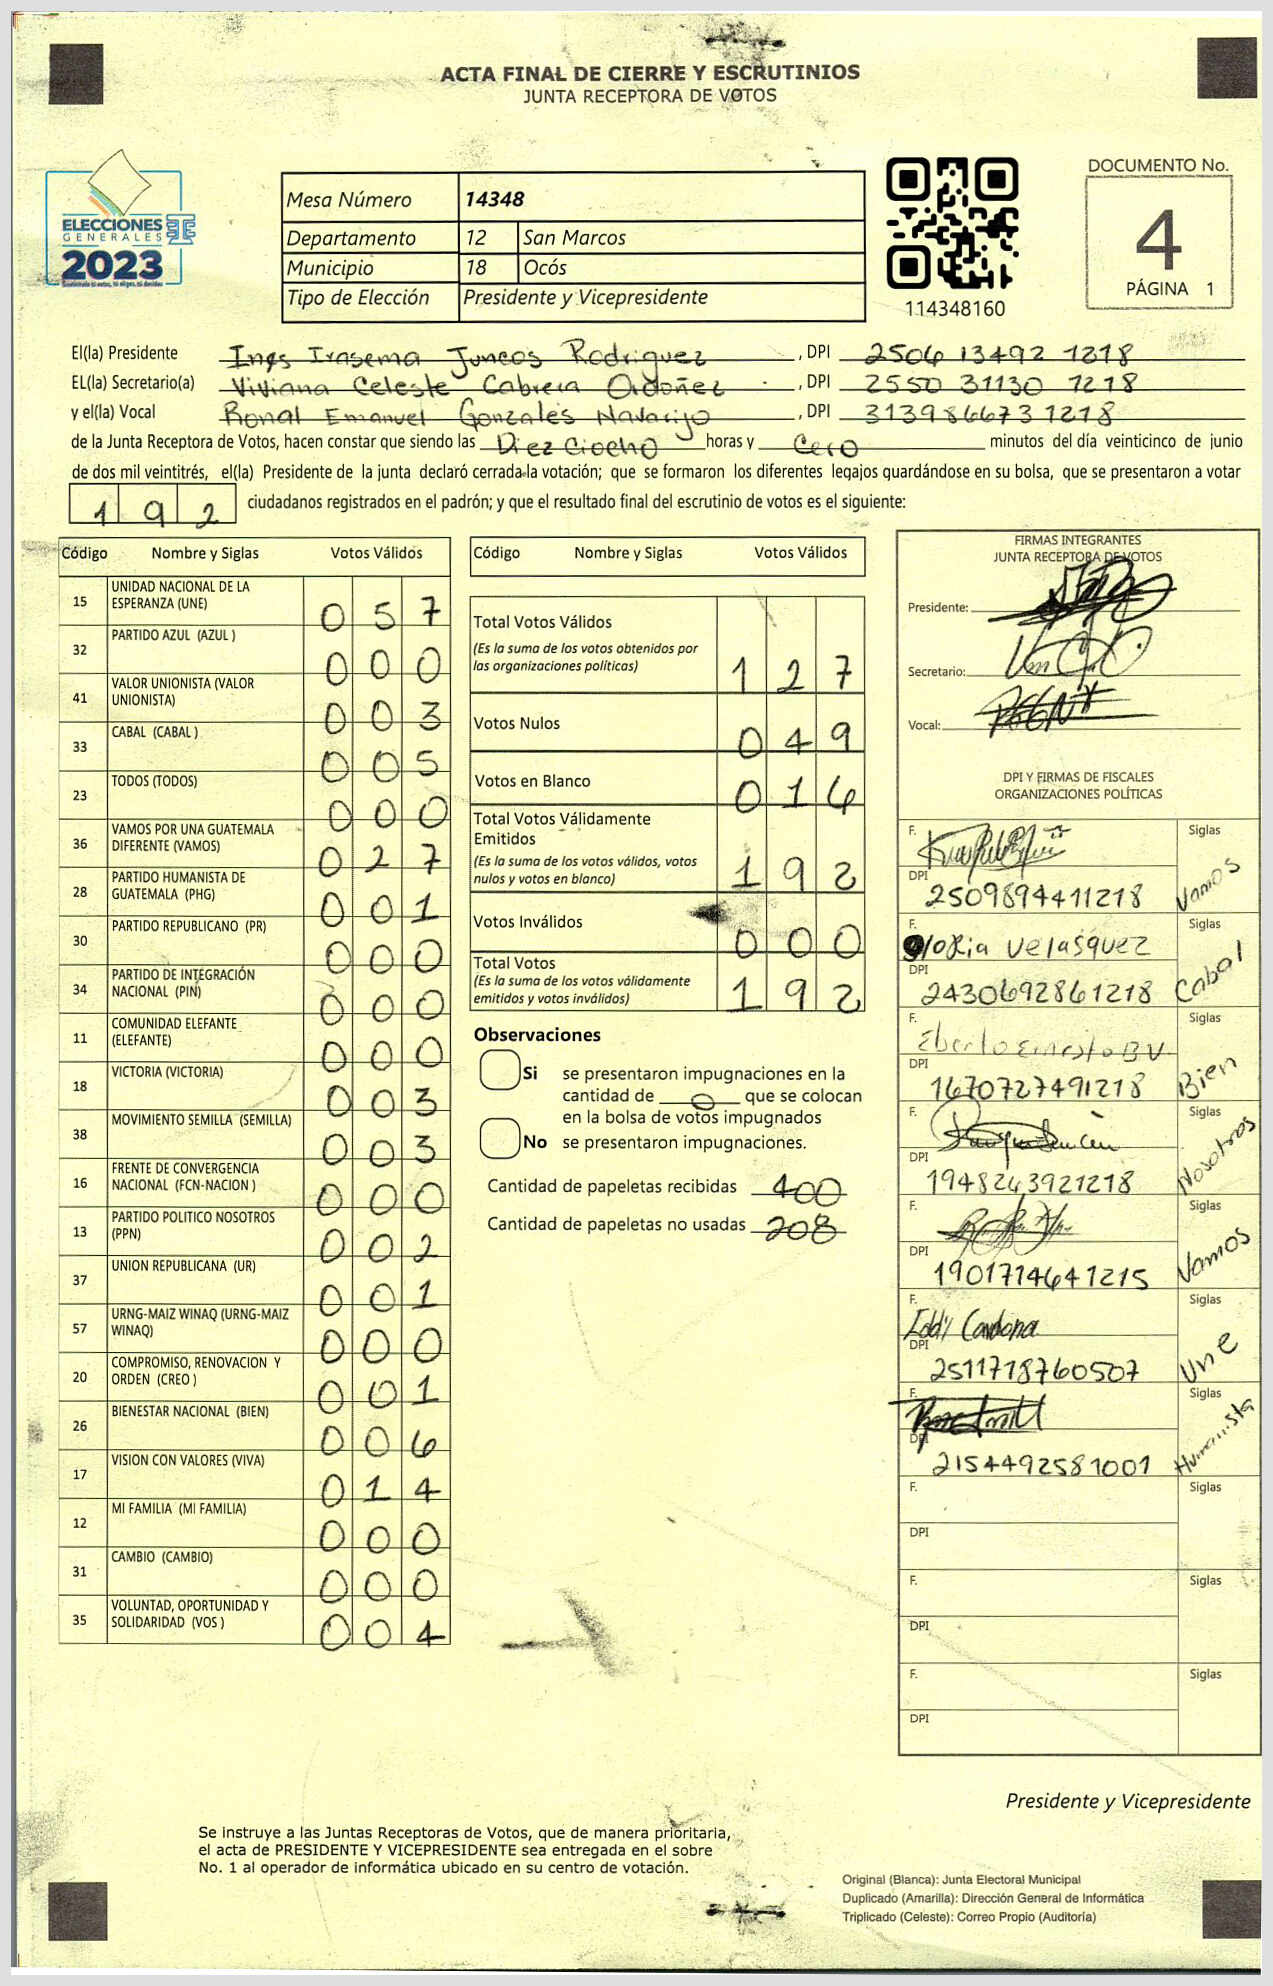 ACTA FINAL DE CIERRE Y ESCRUTINIOS
JUNTA RECEPTORA DE VOTOS
ELECCIONES
GENERALES
2023
Mesa Número 14348
Departamento 12 San Marcos
Municipio 18 Ocós
Tipo de Elección Presidente y Vicepresidente
114348160
DOCUMENTO No.
4
PÁGINA 1
El(la) Presidente Ings Irasema Juncos Rodriguez, DPI 2506 13492 1218
EL(la) Secretario(a) Viviana Celeste Cabrera Ordoñez, DPI 2550 31130 1218
y el(la) Vocal Ronal Emanuel Gonzales Navarijo, DPI 3139866731218
de la Junta Receptora de Votos, hacen constar que siendo las Diez Ciocho horas y Cero minutos del día veinticinco de junio
de dos mil veintitrés, el(la) Presidente de la junta declaró cerrada la votación; que se formaron los diferentes legajos guardándose en su bolsa, que se presentaron a votar
192 ciudadanos registrados en el padrón; y que el resultado final del escrutinio de votos es el siguiente:
Código Nombre y Siglas Votos Válidos
15 UNIDAD NACIONAL DE LA ESPERANZA (UNE) 057
32 PARTIDO AZUL (AZUL ) 000
41 VALOR UNIONISTA (VALOR UNIONISTA) 003
33 CABAL (CABAL ) 005
23 TODOS (TODOS) 000
36 VAMOS POR UNA GUATEMALA DIFERENTE (VAMOS) 027
28 PARTIDO HUMANISTA DE GUATEMALA (PHG) 001
30 PARTIDO REPUBLICANO (PR) 000
34 PARTIDO DE INTEGRACIÓN NACIONAL (PIN) 000
11 COMUNIDAD ELEFANTE (ELEFANTE) 000
18 VICTORIA (VICTORIA) 003
38 MOVIMIENTO SEMILLA (SEMILLA) 003
16 FRENTE DE CONVERGENCIA NACIONAL (FCN-NACION ) 000
13 PARTIDO POLITICO NOSOTROS (PPN) 002
37 UNION REPUBLICANA (UR) 001
57 URNG-MAIZ WINAQ (URNG-MAIZ WINAQ) 000
20 COMPROMISO, RENOVACION Y ORDEN (CREO ) 001
26 BIENESTAR NACIONAL (BIEN) 006
17 VISION CON VALORES (VIVA) 014
12 MI FAMILIA (MI FAMILIA) 000
31 CAMBIO (CAMBIO) 000
35 VOLUNTAD, OPORTUNIDAD Y SOLIDARIDAD (VOS ) 004
Código Nombre y Siglas Votos Válidos
Total Votos Válidos 127
(Es la suma de los votos obtenidos por
las organizaciones políticas)
Votos Nulos 049
Votos en Blanco 016
Total Votos Válidamente
Emitidos 192
(Es la suma de los votos válidos, votos
nulos y votos en blanco)
Votos Inválidos 000
Total Votos 192
(Es la suma de los votos válidamente
emitidos y votos inválidos)
Observaciones
Si se presentaron impugnaciones en la
cantidad de 0 que se colocan
en la bolsa de votos impugnados
No se presentaron impugnaciones.
Cantidad de papeletas recibidas 400
Cantidad de papeletas no usadas 208
FIRMAS INTEGRANTES
JUNTA RECEPTORA DE VOTOS
Presidente:
Secretario:
Vocal:
DPI Y FIRMAS DE FISCALES
ORGANIZACIONES POLÍTICAS
F. Siglas Vamos
DPI 2509894411218
F. Gloria Velasquez Siglas Cabal
DPI 2430692861218
F. Eberto Ernesto B V. Siglas Bien
DPI 1670727491218
F. Siglas Nosotros
DPI 1948243921218
F. Siglas Vamos
DPI 1901714641215
F. Eddy Cardona Siglas Une
DPI 2511718760507
F. Siglas Humanista
DPI 2154492581001
F. Siglas
DPI
F. Siglas
DPI
F. Siglas
DPI
Presidente y Vicepresidente
Se instruye a las Juntas Receptoras de Votos, que de manera prioritaria,
el acta de PRESIDENTE Y VICEPRESIDENTE sea entregada en el sobre
No. 1 al operador de informática ubicado en su centro de votación.
Original (Blanca): Junta Electoral Municipal
Duplicado (Amarilla): Dirección General de Informática
Triplicado (Celeste): Correo Propio (Auditoría)